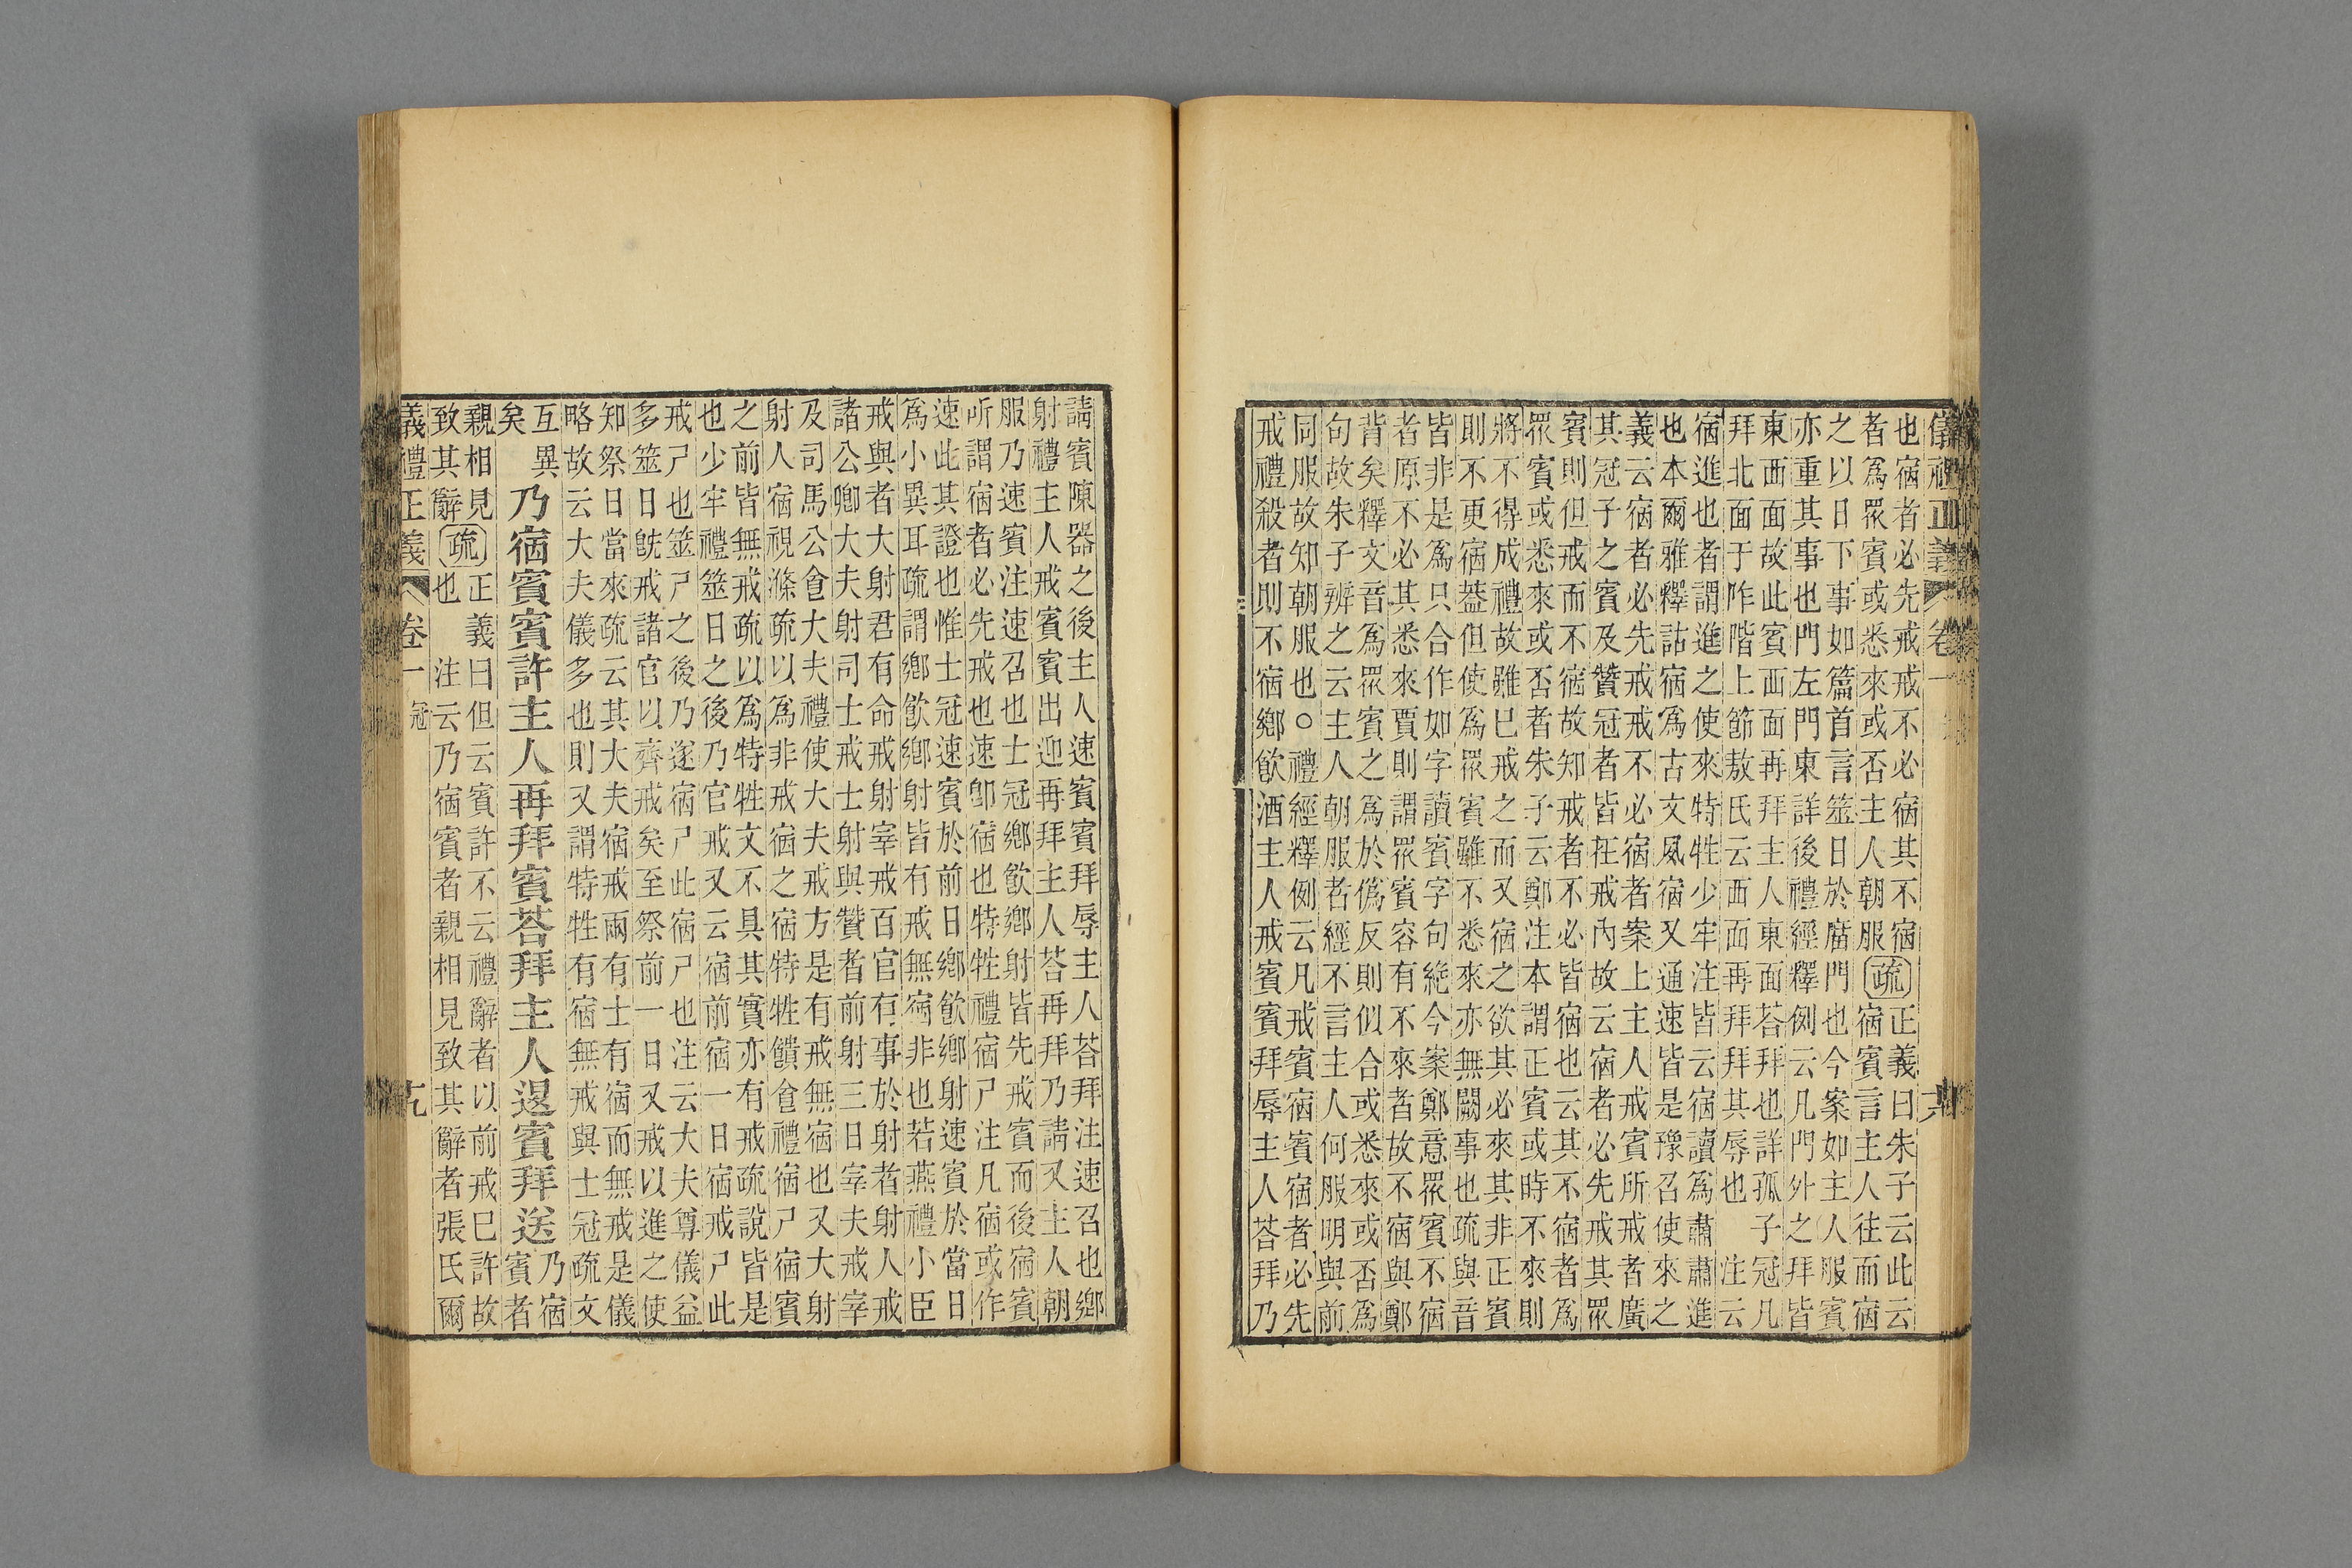 儀禮正義 卷一
也宿者必先戒戒不必宿其不宿
者爲眾賓或悉來或否主人朝服
疏
正義曰朱子云此云
宿賓言主人往而宿
之以日下事如篇首言筮日於廟門也今案如主人服賓
亦重其事也門左門東詳後禮經釋例云凡門外之拜皆
東西面故此賓西面再拜主人東面荅拜也詳孤子冠凡
拜北面于阼階上節敖氏云西面再拜拜其辱也 注云
宿進也者謂進之使來特牲少牢注皆云宿讀爲肅肅進
也本爾雅釋詁宿爲古文夙宿又通速皆是豫召使來之
義云宿者必先戒戒不必宿者案上主人戒賓所戒者廣
其冠子之賓及贊冠者皆在戒內故云宿者必先戒其眾
賓則但戒而不宿故知戒者不必皆宿也云其不宿者爲
眾賓或悉來或否者朱子云鄭注本謂正賓或時不來則
將不得成禮故雖已戒之而又宿之欲其必來其非正賓
則不更宿蓋但使爲眾賓雖不悉來亦無闕事也疏與音
皆非是爲只合作如字讀賓字句絶今案鄭意眾賓不宿
者原不必其悉來賈則謂眾賓容有不來者故不宿與鄭
背矣釋文音爲眾賓之爲於僞反則似合或悉來或否爲
句故朱子辨之云主人朝服者經不言主人何服明與前
同服故知朝服也○禮經釋例云凡戒賓宿賓宿者必先
戒禮殺者則不宿鄉飲酒主人戒賓賓拜辱主人荅拜乃
請賓陳器之後主人速賓賓拜辱主人荅拜注速召也鄉
射禮主人戒賓賓出迎再拜主人荅再拜乃請又主人朝
服乃速賓注速召也士冠鄉飲鄉射皆先戒賓而後宿賓
所謂宿者必先戒也速卽宿也特牲禮宿尸注凡宿或作
速此其證也惟士冠速賓於前日鄉飲鄉射速賓於當日
爲小異耳疏謂鄉飲鄉射皆有戒無宿非也若燕禮小臣
戒與者大射君有命戒射宰戒百官有事於射者射人戒
諸公卿大夫射司士戒士射與贊者前射三日宰夫戒宰
及司馬公食大夫禮使大夫戒方是有戒無宿也又大射
射人宿視滌疏以爲非戒宿之宿特牲饋食禮宿尸宿賓
之前皆無戒疏以爲特牲文不具其實亦有戒疏說皆是
也少牢禮筮日之後乃官戒又云宿前宿一日宿戒尸此
戒尸也筮尸之後乃遂宿尸此宿尸也注云大夫尊儀益
多筮日旣戒諸官以齊戒矣至祭前一日又戒以進之使
知祭日當來疏云其大夫宿戒兩有士有宿而無戒是儀
略故云大夫儀多也則又謂特牲有宿無戒與士冠疏文
互異
矣
乃宿賓賓許主人再拜賓荅拜主人退賓拜送
乃宿
賓者
親相見
致其辭
疏
正義曰但云賓許不云禮辭者以前戒已許故
也 注云乃宿賓者親相見致其辭者張氏爾
儀禮正義 卷一 冠